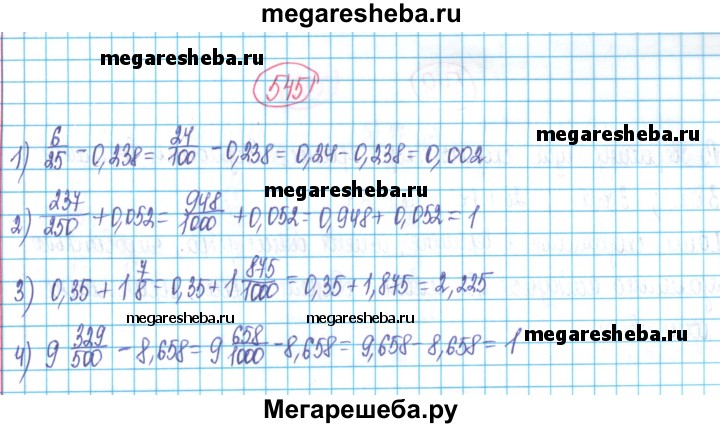 megaresheba.ru
megaresheba.ru
545
megaresheba.ru
1) 6/25 − 0,238 = 24/100 − 0,238 = 0,24 − 0,238 = 0,002
megaresheba.ru
2) 237/250 + 0,052 = 948/1000 + 0,052 = 0,948 + 0,052 = 1
3) 0,35 + 1 7/8 = 0,35 + 1 875/1000 = 0,35 + 1,875 = 2,225
megaresheba.ru megaresheba.ru
megaresheba.ru
4) 9 329/500 − 8,658 = 9 658/1000 − 8,658 = 9,658 − 8,658 = 1
Мегарешеба.ру